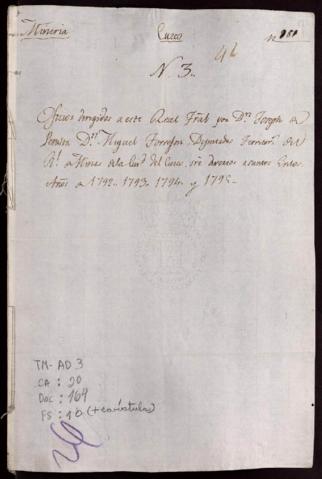 Mineria
Cuzco
N. 3.
Oficios dirigidos a este Real Trib.l por D.n Joseph de
D.n Miguel Torrejon Diputados Territor.s del
R.l de Minas de la Ciu.d del Cuzco, sre diversos asuntos entre
Años de 1792. 1793. 1794. y 1795.
TM-AD 3
CA : 20
Doc : 164
FS : 10 (+carátulas)